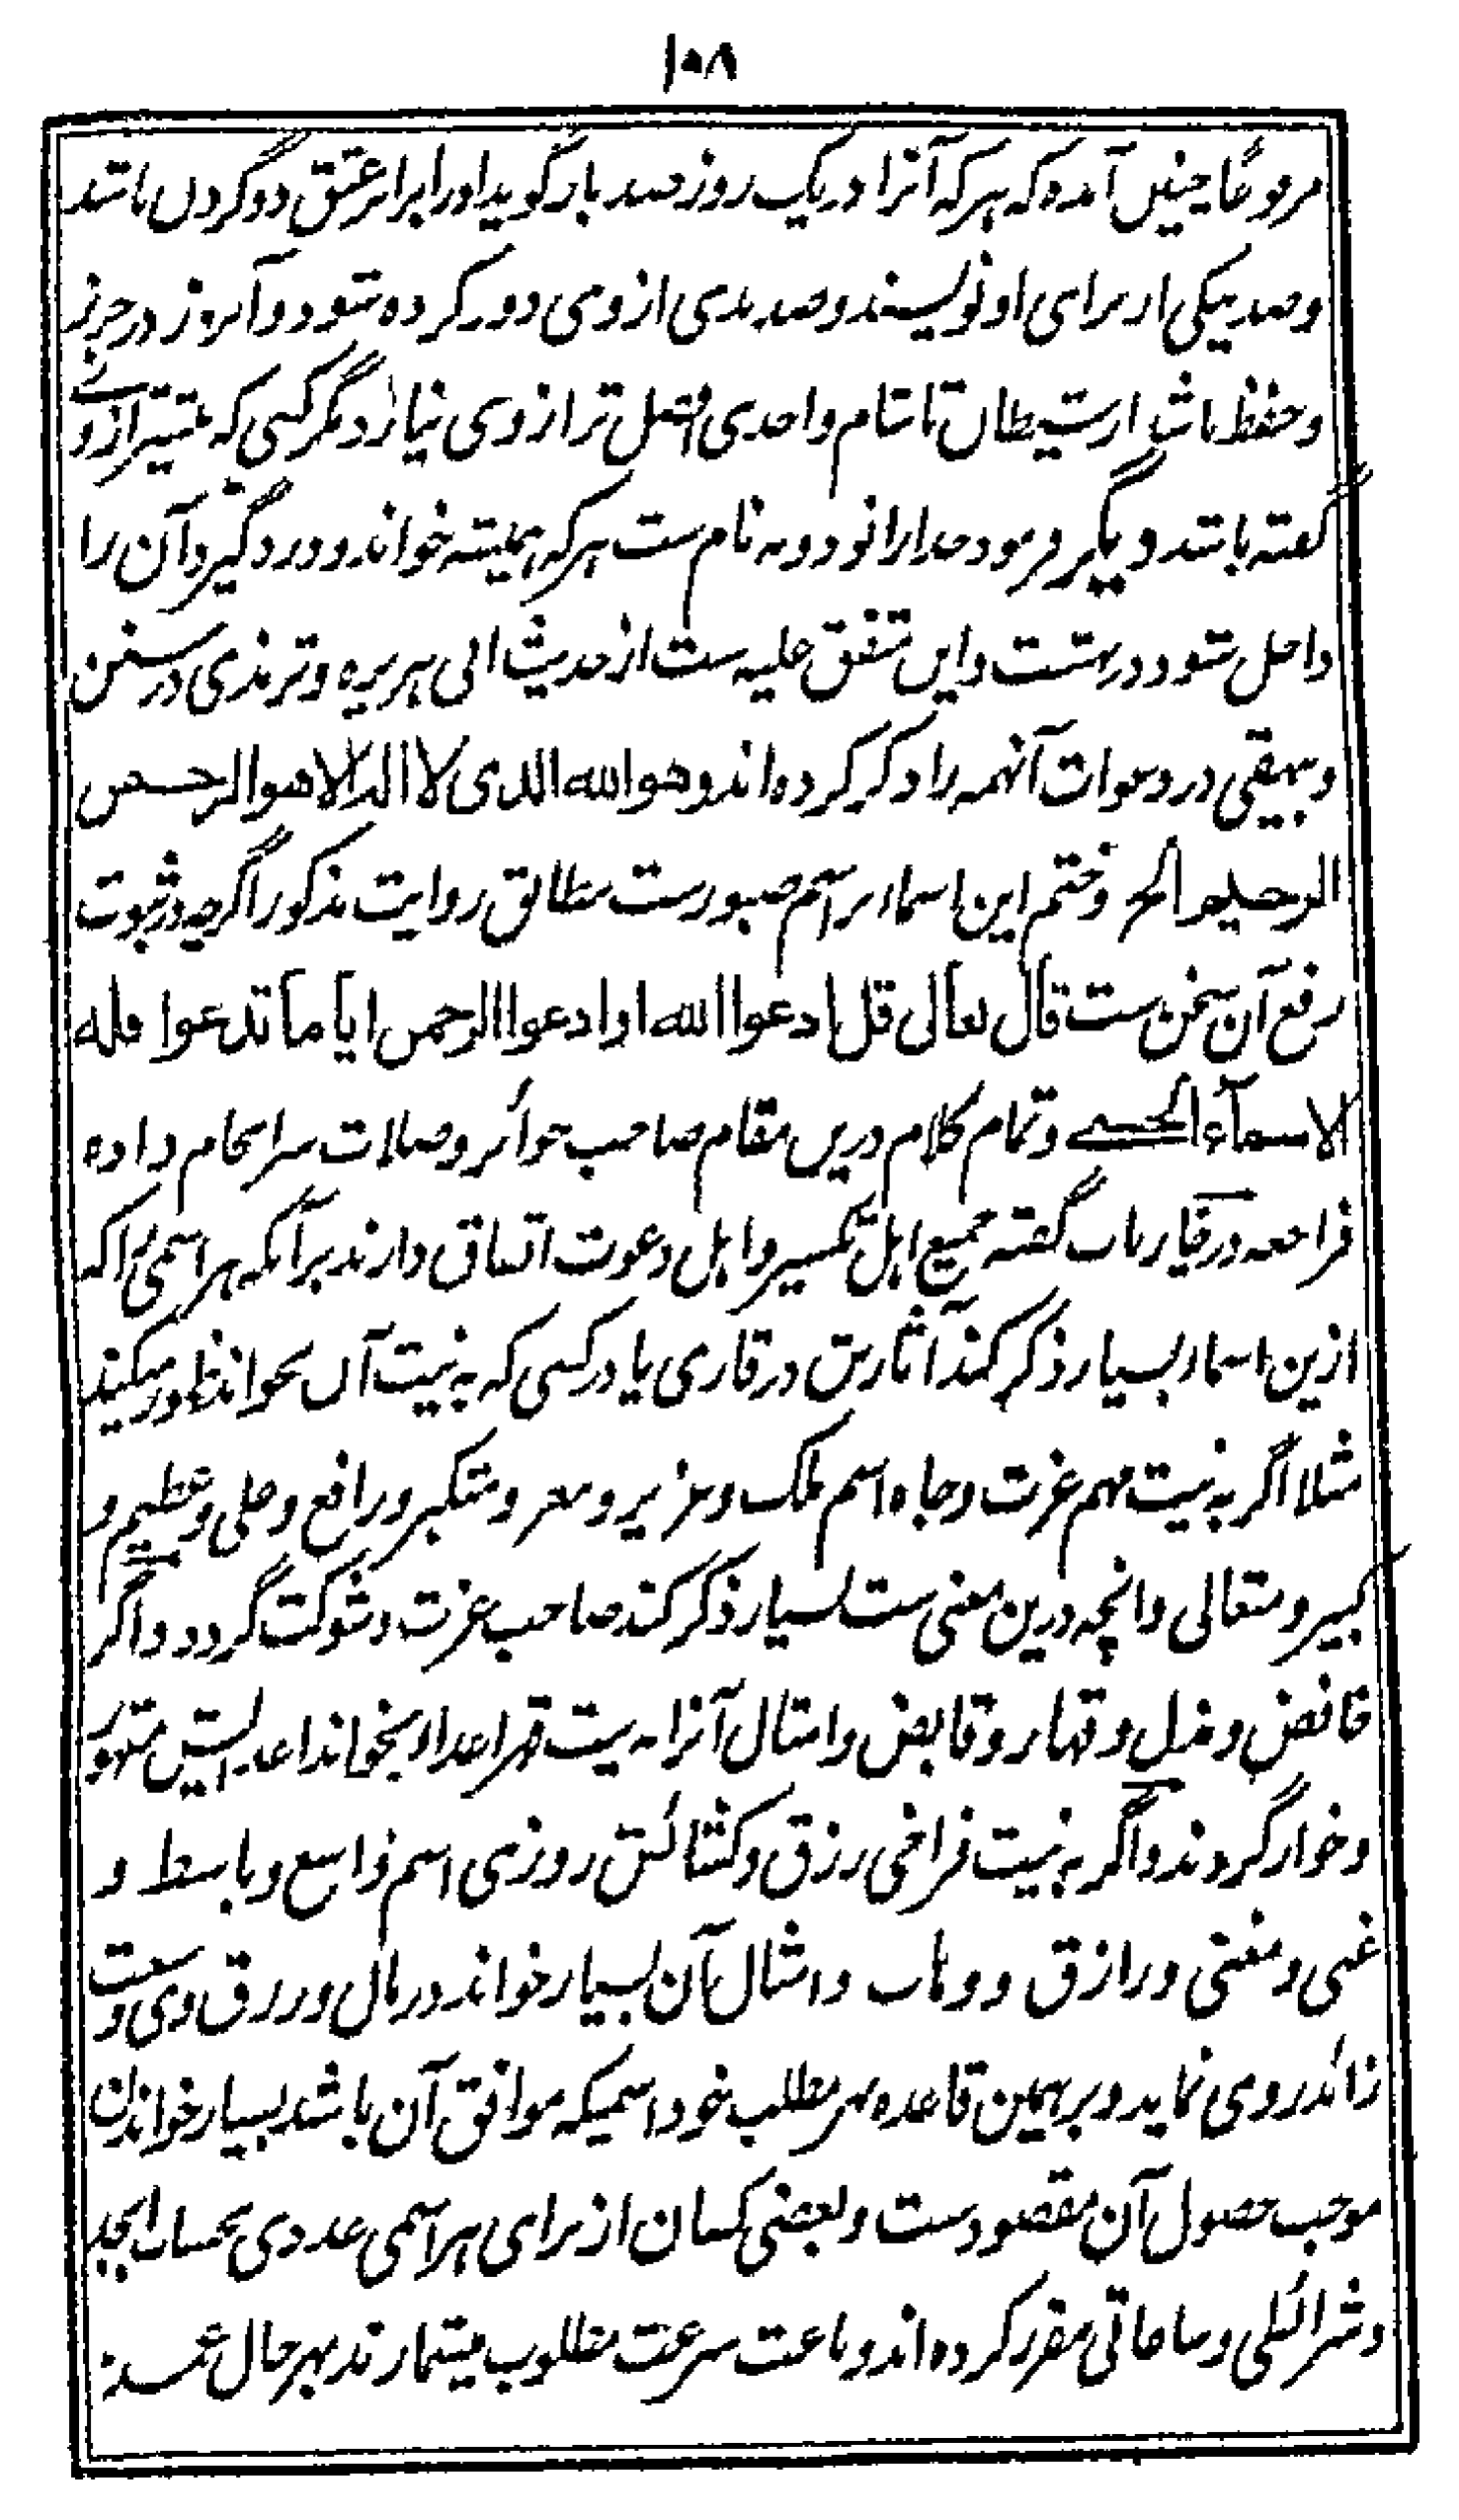 ۱۰۸
مرفوعًا چنیں آمده که هر که آنرا در یک روز صد بار گوید او را برابر عتق دو گردن باشد
و صد نیکی از برای او نویسند و صد بدی از وی دور کرده شود و آنروز در حرز
و حفظ باشد از شیطان تا شام و احدی افضل تر از وی نیارد مگر کسی که بیشتر از وے
گفته باشد و پیغمبر فرمود خدا را نود و نه نام ست هر که همیشه خواند و ورد گیرد آن را
داخل شود در بهشت و ایں متفق علیه ست از حدیث ابی هریره و ترمذی در سنن
و بیهقی در دعوات آنهمه را ذکر کرده اند و هو الله الذی لا اله الا هو الرحمن
الرحیم الخ و ختم این اسما بر اسم صبورست مطابق روایت مذکور اگرچه در ثبوت
رفع آن سخن ست قال تعالی قل ادعوا الله او ادعوا الرحمن ایا ما تدعوا فله
الاسماء الحسنے و تمام کلام دریں مقام صاحب جوائز و صلات سرانجام داده
فراجعه در قیاریاب گفته جمیع اهل تکسیر و اهل دعوت اتفاق دارند بر آنکه هر اسمی را که
ازین اسماء بسیار ذکر کند آثارش در قاری یا در کسی که به نیت آں بخواند ظهور میکند
مثلا اگر به نیت مهم عزت و جاه اسم ملک و عزیز و معز و متکبر و رافع و علی و عظیم و
کبیر و متعالی و انچه درین معنی ست بسیار ذکر کند صاحب عزت و شوکت گردد و اگر
خافض و مذل و قهار و قابض و امثال آنرا به نیت قهر اعداء بخواند اعدایش مقهور
و خوار گردند و اگر به نیت فراخی رزق و کشائش روزی اسم واسع و باسط و
غنی و مغنی و رازق و وهاب و امثال آن بسیار خواند در مال و رزق وی وسعت
زائد روی نماید و بر همین قاعده هر مطلب خود اسمیکه موافق آن باشد بسیار خواندن
موجب حصول آن مقصودست و بعضی کسان از برای هر اسمی عددی بحساب ابجد
و شرائطی و ساعاتی مقرر کرده اند و باعث سرعت مطلوب میشمارند بهر حال